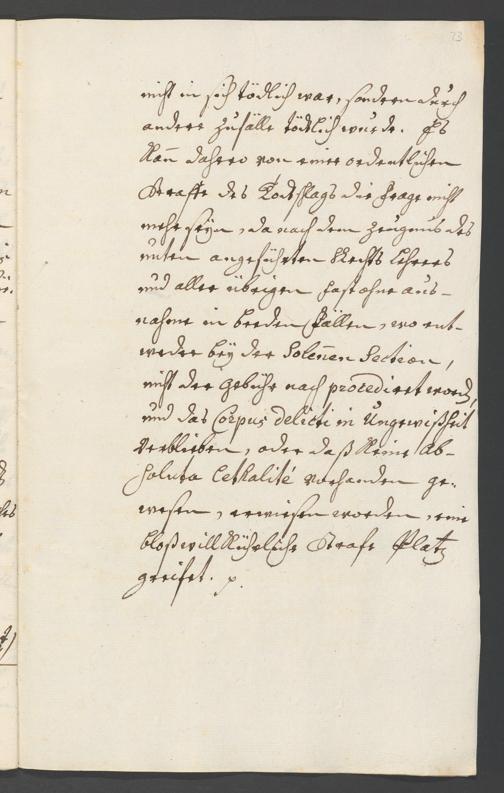 23
nicht in sich tödlich war, sondern durch
andere Zufälle tödtlich wurde. Es
kan̄ dahero von einer ordentlichen
Straffe des Todschlags die Frage nicht
mehr seÿn, da nach dem Zeugnus des
unten angeführten Rechts Lehrers
und aller übrigen, fast ohne aus-
nahme in beeden Fällen, wo ent-
weder beÿ der Solen̄en Section,
nicht der Gebühr nach procediret word.
und das Corpus delicti in Ungewißheit
verblieben, oder daß keine Ab-
soluta Lethalité vorhanden ge-
wesen, erwiesen worden, eine
bloß willkührliche Strafe Platz
greifet.